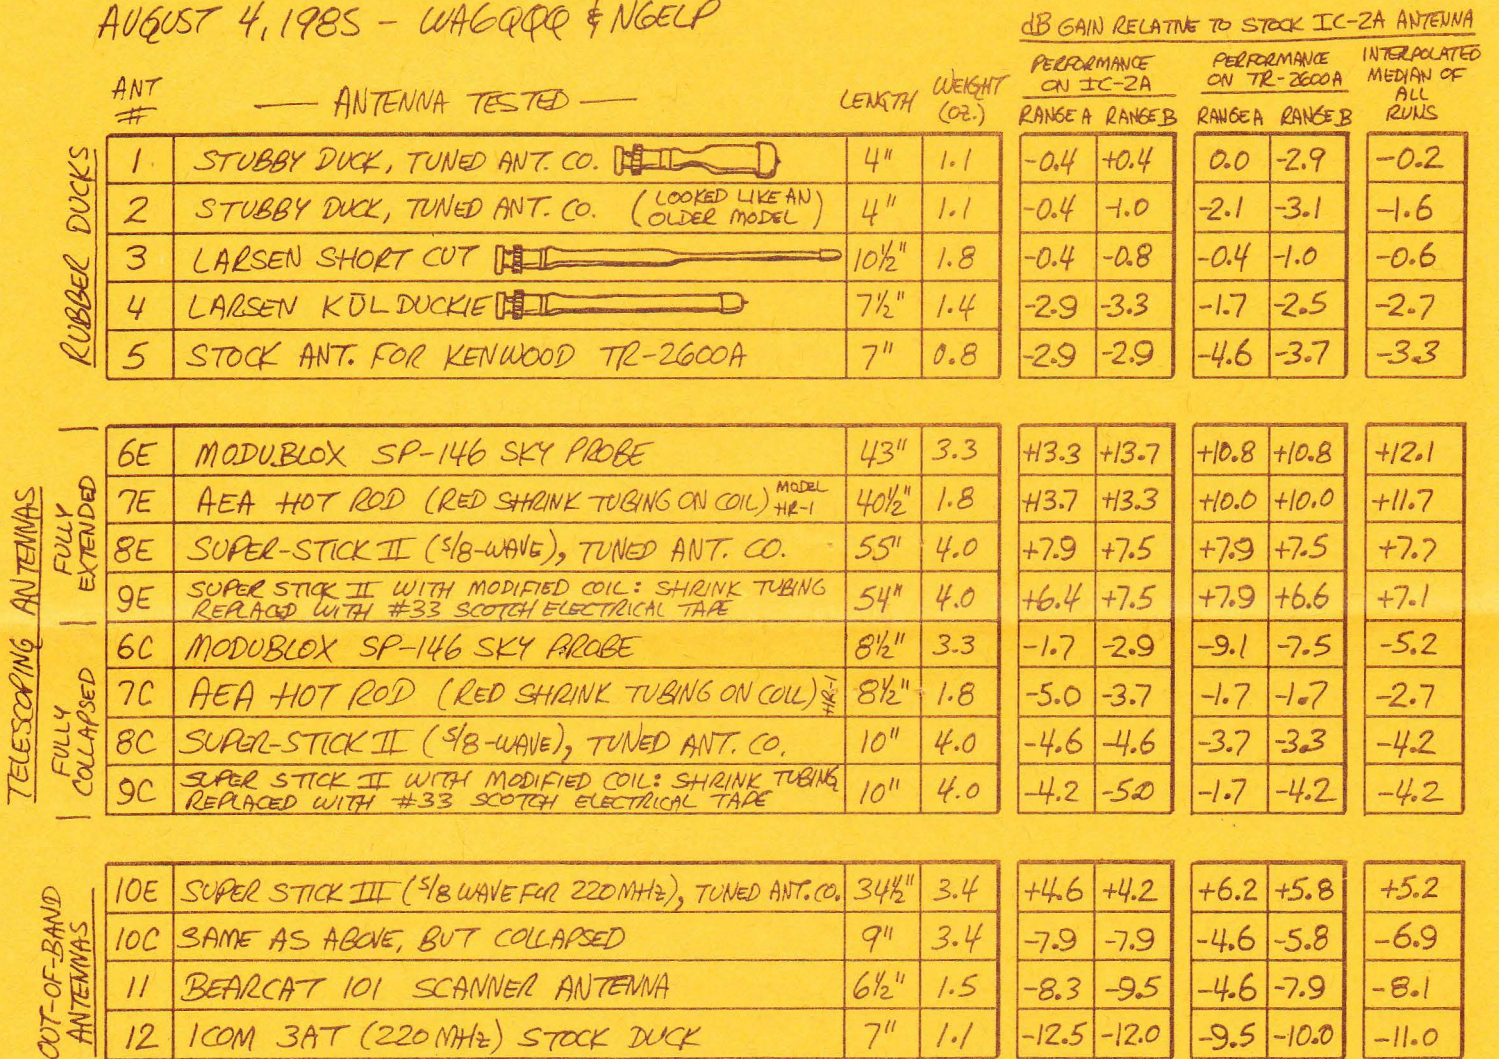 AUGUST 4, 1985 - WA6QQQ & N6ELP
dB GAIN RELATIVE TO STOCK IC-2A ANTENNA
ANT # — ANTENNA TESTED — LENGTH WEIGHT (OZ.) PERFORMANCE ON IC-2A PERFORMANCE ON TR-2600A INTERPOLATED MEDIAN OF ALL RUNS
RANGE A RANGE B RANGE A RANGE B
RUBBER DUCKS
1 STUBBY DUCK, TUNED ANT. CO. 4" 1.1 -0.4 +0.4 0.0 -2.9 -0.2
2 STUBBY DUCK, TUNED ANT. CO. (LOOKED LIKE AN OLDER MODEL) 4" 1.1 -0.4 -1.0 -2.1 -3.1 -1.6
3 LARSEN SHORT CUT 10½" 1.8 -0.4 -0.8 -0.4 -1.0 -0.6
4 LARSEN KŪLDUCKIE 7½" 1.4 -2.9 -3.3 -1.7 -2.5 -2.7
5 STOCK ANT. FOR KENWOOD TR-2600A 7" 0.8 -2.9 -2.9 -4.6 -3.7 -3.3
TELESCOPING ANTENNAS
FULLY EXTENDED
6E MODUBLOX SP-146 SKY PROBE 43" 3.3 +13.3 +13.7 +10.8 +10.8 +12.1
7E AEA HOT ROD (RED SHRINK TUBING ON COIL) MODEL HR-1 40½" 1.8 +13.7 +13.3 +10.0 +10.0 +11.7
8E SUPER-STICK II (5/8-WAVE), TUNED ANT. CO. 55" 4.0 +7.9 +7.5 +7.9 +7.5 +7.7
9E SUPER STICK II WITH MODIFIED COIL: SHRINK TUBING REPLACED WITH #33 SCOTCH ELECTRICAL TAPE 54" 4.0 +6.4 +7.5 +7.9 +6.6 +7.1
FULLY COLLAPSED
6C MODUBLOX SP-146 SKY PROBE 8½" 3.3 -1.7 -2.9 -9.1 -7.5 -5.2
7C AEA HOT ROD (RED SHRINK TUBING ON COIL) HR-1 8½" 1.8 -5.0 -3.7 -1.7 -1.7 -2.7
8C SUPER-STICK II (5/8-WAVE), TUNED ANT. CO. 10" 4.0 -4.6 -4.6 -3.7 -3.3 -4.2
9C SUPER STICK II WITH MODIFIED COIL: SHRINK TUBING REPLACED WITH #33 SCOTCH ELECTRICAL TAPE 10" 4.0 -4.2 -5.0 -1.7 -4.2 -4.2
OUT-OF-BAND ANTENNAS
10E SUPER STICK III (5/8 WAVE FOR 220 MHz), TUNED ANT. CO. 34½" 3.4 +4.6 +4.2 +6.2 +5.8 +5.2
10C SAME AS ABOVE, BUT COLLAPSED 9" 3.4 -7.9 -7.9 -4.6 -5.8 -6.9
11 BEARCAT 101 SCANNER ANTENNA 6½" 1.5 -8.3 -9.5 -4.6 -7.9 -8.1
12 ICOM 3AT (220 MHz) STOCK DUCK 7" 1.1 -12.5 -12.0 -9.5 -10.0 -11.0